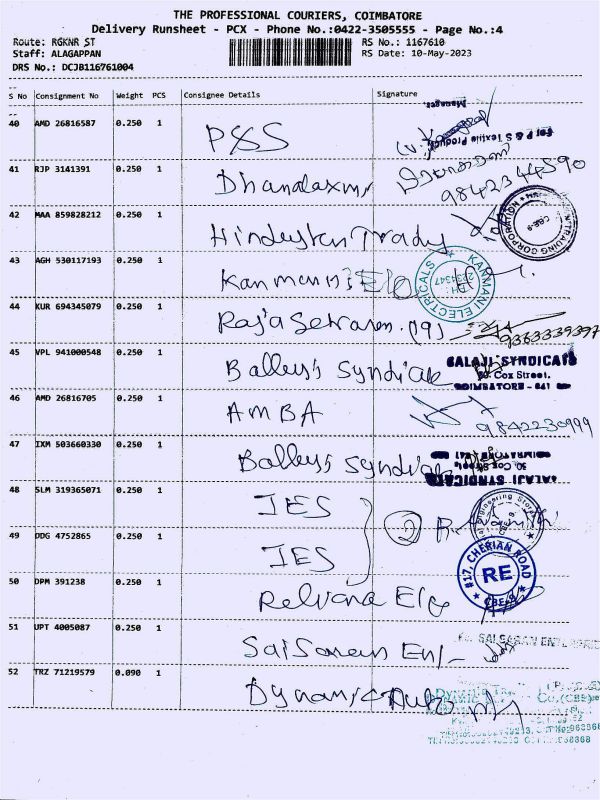 THE PROFESSIONAL COURIERS, COIMBATORE
Delivery Runsheet - PCX - Phone No.:0422-3505555 - Page No.:4
Route: RGKNR ST
RS No.: 1167610
Staff: ALAGAPPAN
RS Date: 10-May-2023
DRS No.: DCJB116761004
S No Consignment No Weight PCS Consignee Details Signature
40 AMD 26816587 0.250 1 P&S
Manager
For P & S Textile Products
41 RJP 3141391 0.250 1 Dhanalaxmi
9842344590
42 MAA 859828212 0.250 1 Hindustan Trady
TRADING CORPORATION
CBE-9
43 AGH 530117193 0.250 1 Kanmani Ele
KANMANI ELECTRICALS
PH:
2234347
44 KUR 694345079 0.250 1 Rajasekaran (19)
9363339397
45 VPL 941000548 0.250 1 Balleys Syndicate
BALAJI SYNDICATE
30 Cox Street,
COIMBATORE - 641
46 AMD 26816705 0.250 1 AMBA
9842230999
47 IXM 503660330 0.250 1 Balleys Syndicate
BALAJI SYNDICATE
30, Cox Street
COIMBATORE 641
48 SLM 319365071 0.250 1 IES
2
Engineering Stores
CBE-9.
49 DDG 4752865 0.250 1 IES
#17, CHERIAN ROAD
RE
CBE-9
50 DPM 391238 0.250 1 Relvana Ele
51 UPT 4005087 0.250 1 Saisaran Ent-
For SAI SARAN ENTERPRISE
52 TRZ 71219579 0.090 1 Dynamic Auto
Co., (CBE)